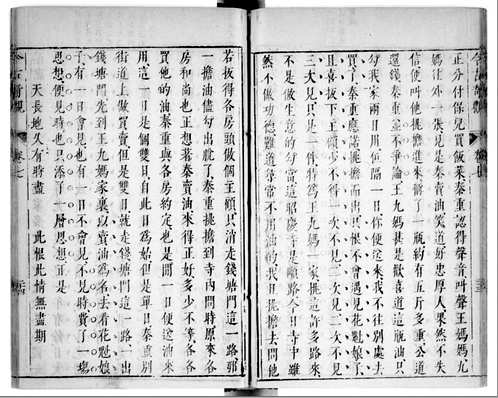 正分付保兒買飯菜秦重認得聲音叫聲王媽媽九
媽往外一張見是秦賣油笑道好忠厚人果然不失
信便叫他挑擔進來稱了一瓶約有五斤多重公道
還錢秦重並不爭論王九媽甚是歡喜道這瓶油只
勾我家兩日用但隔一日你便送來我不往別處去
買了秦重應諾挑擔而出只恨不曾遇見花魁娘子
且喜扳下主顧少不得一次不見二次見二次不見
三次見只是一件特為王九媽一家挑這許多路來
不是做生意的勾當這昭慶寺是順路今日寺中雖
然不做功德難道尋常不用油的我且挑擔去問他
若扳得各房頭做個主顧只消走錢塘門這一路那
一擔油儘勾出脫了秦重挑擔到寺內問時原來各
房和尚也正想著秦賣油來得正好多少不等各各
買他的油秦重與各房約定也是間一日便送油來
用這一日是個雙日自此日為始但是單日秦重別
街道上做買賣但是雙日就走錢塘門這一路一出
錢塘門先到王九媽家裏以賣油為名去看花魁娘
子有一日會見也有一日不會見不見時費了一場
思想便見時也只添了一層思想正是
天長地久有時盡 此恨此情無盡期
今古奇觀 卷七